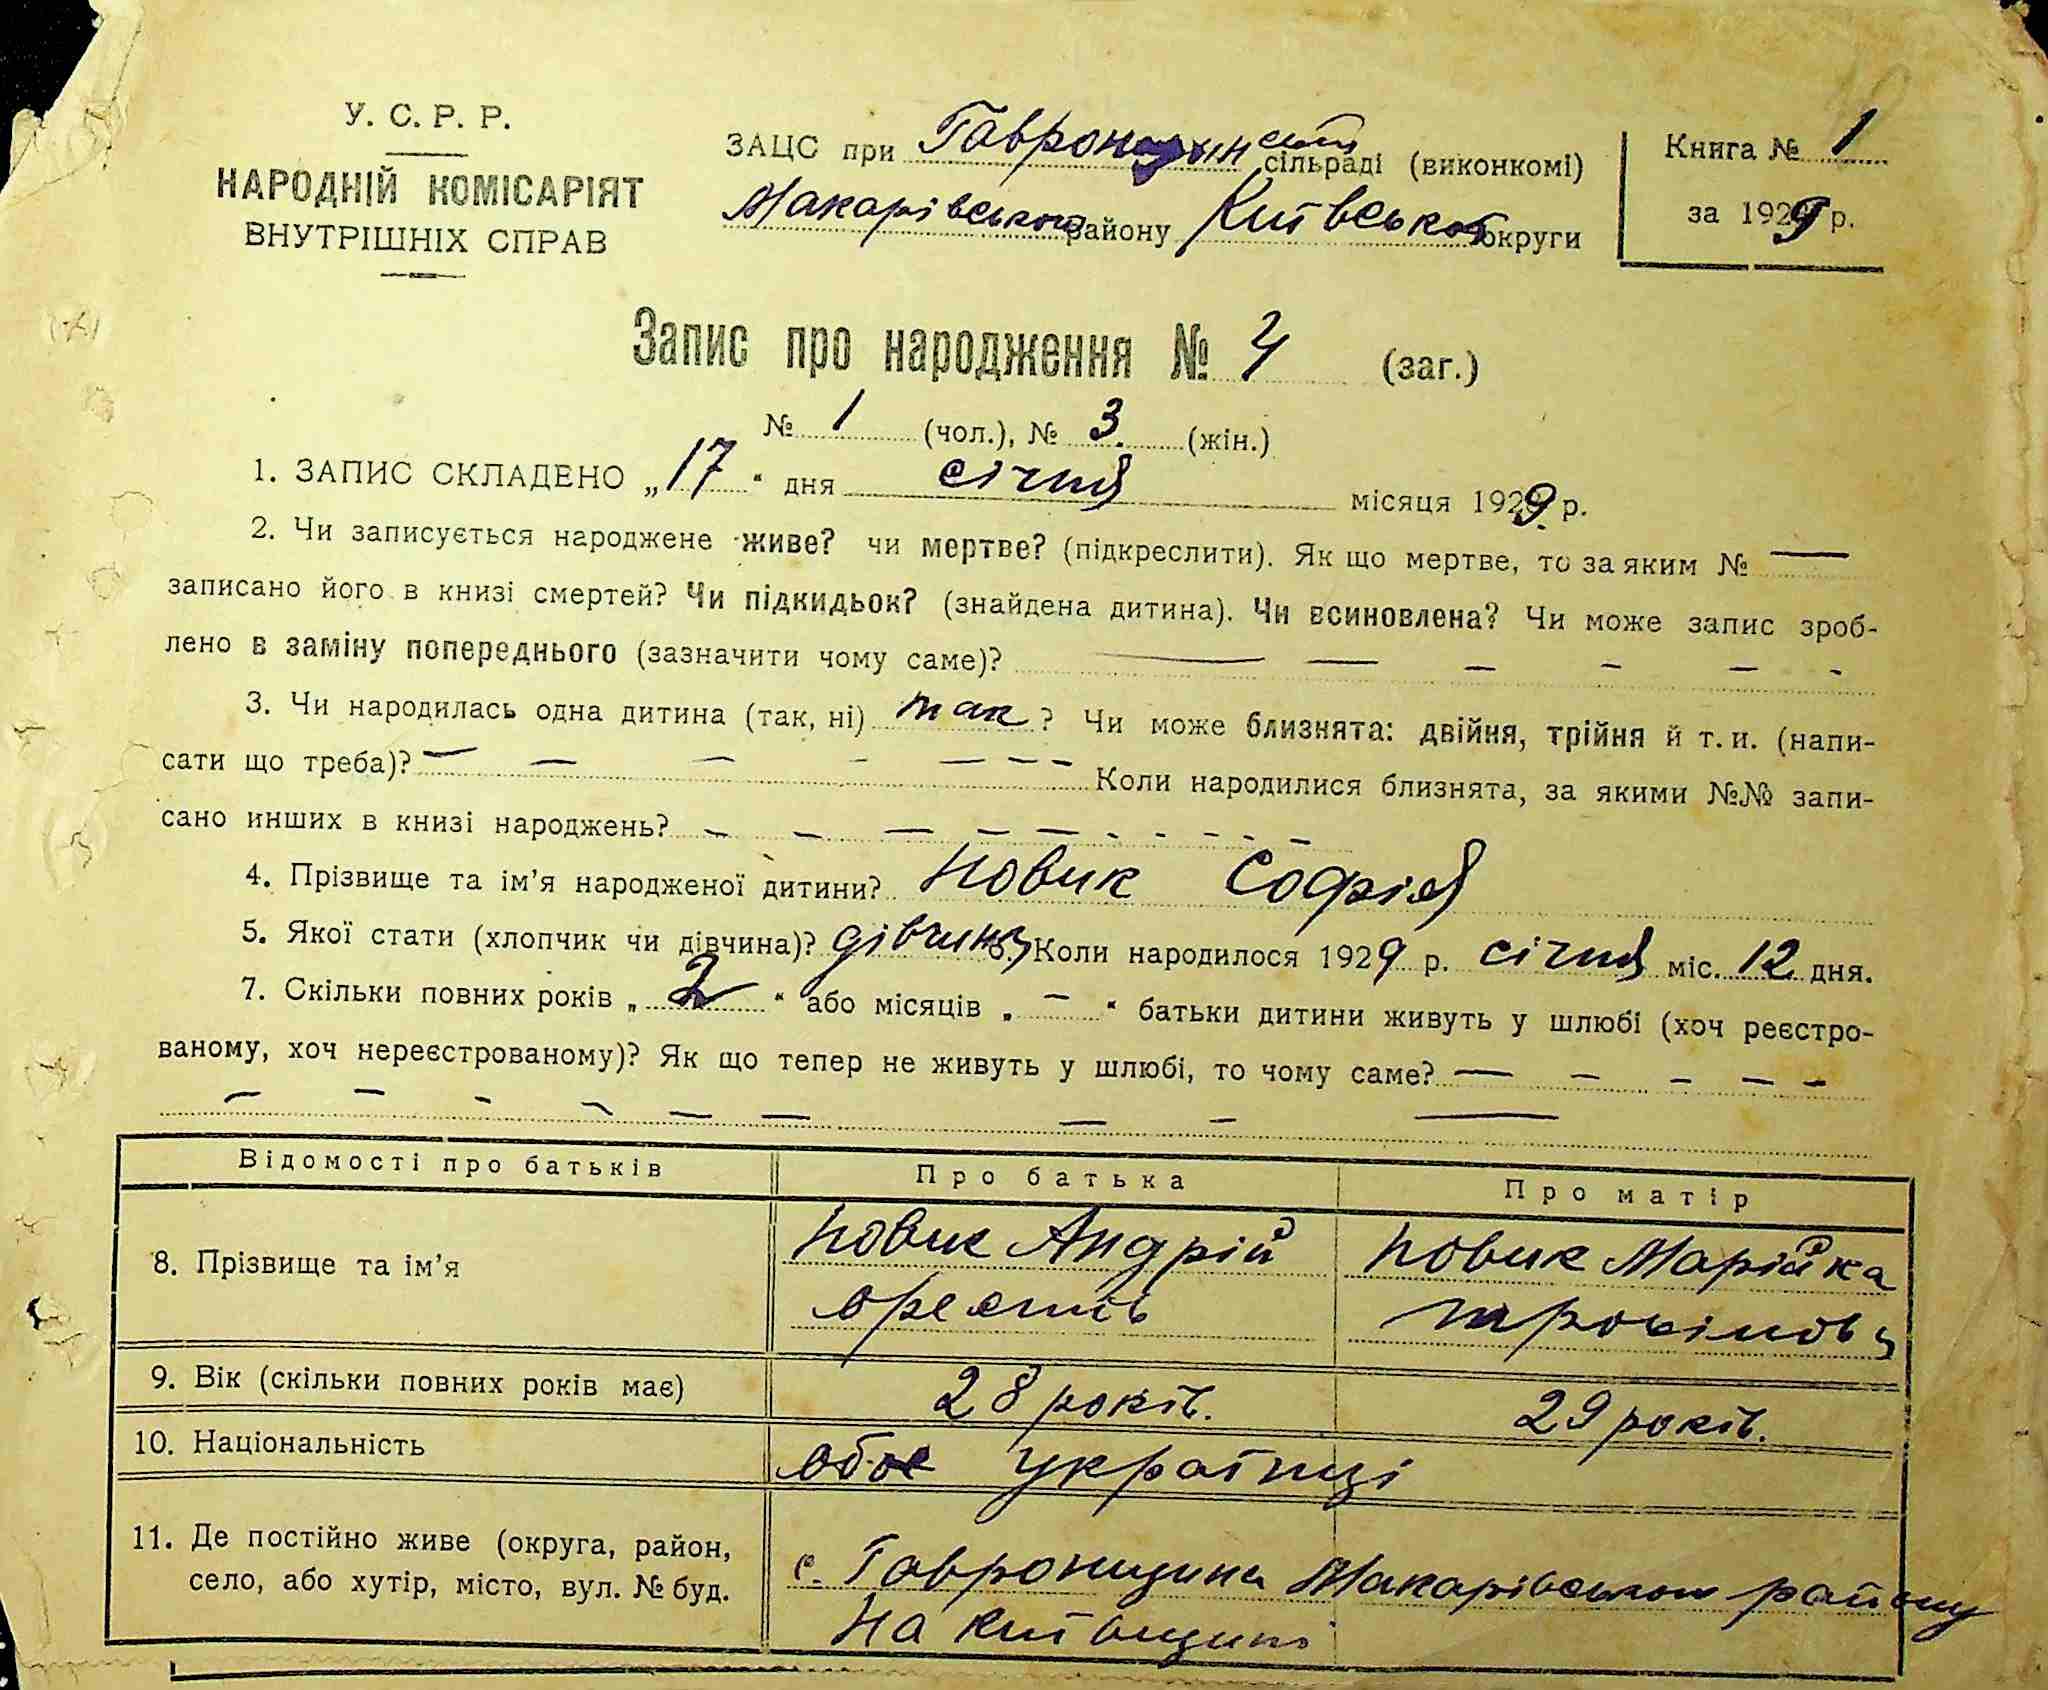 У. С. Р. Р.
НАРОДНІЙ КОМІСАРІЯТ
ВНУТРІШНІХ СПРАВ
ЗАЦС при Гавронщинській сільраді (виконкомі)
Макарівського району Київської округи
Книга № 1
за 1929 р.
Запис про народження № 4 (заг.)
№ 1 (чол.), № 3. (жін.)
1. ЗАПИС СКЛАДЕНО „17“ дня січня місяця 1929. р.
2. Чи записується народжене живе? чи мертве? (підкреслити). Як що мертве, то за яким № —
записано його в книзі смертей? Чи підкидьок? (знайдена дитина). Чи всиновлена? Чи може запис зроб-
лено в заміну попереднього (зазначити чому саме)? — — — — — -
3. Чи народилась одна дитина (так, ні) так ? Чи може близнята: двійня, трійня й т. и. (напи-
сати що треба)? — — — - — — — — Коли народилися близнята, за якими №№ запи-
сано инших в книзі народжень? — — — — — - - - - —
4. Прізвище та ім’я народженої дитини? Новик Софія
5. Якої стати (хлопчик чи дівчина)? дівчина 6. Коли народилося 1929 р. січня міс. 12 дня.
7. Скільки повних років „ 2 “ або місяців „ — “ батьки дитини живуть у шлюбі (хоч реєстро-
ваному, хоч нереєстрованому)? Як що тепер не живуть у шлюбі, то чому саме? — — — — —
— — - — — — — — —
Відомості про батьків Про батька Про матір
8. Прізвище та ім’я Новик Андрій Новик Марійка
9. Вік (скільки повних років має) 28 років. 29 років.
10. Національність обоє українці
11. Де постійно живе (округа, район,
село, або хутір, місто, вул. № буд.
с. Гавронщина Макарівського району
на Київщині